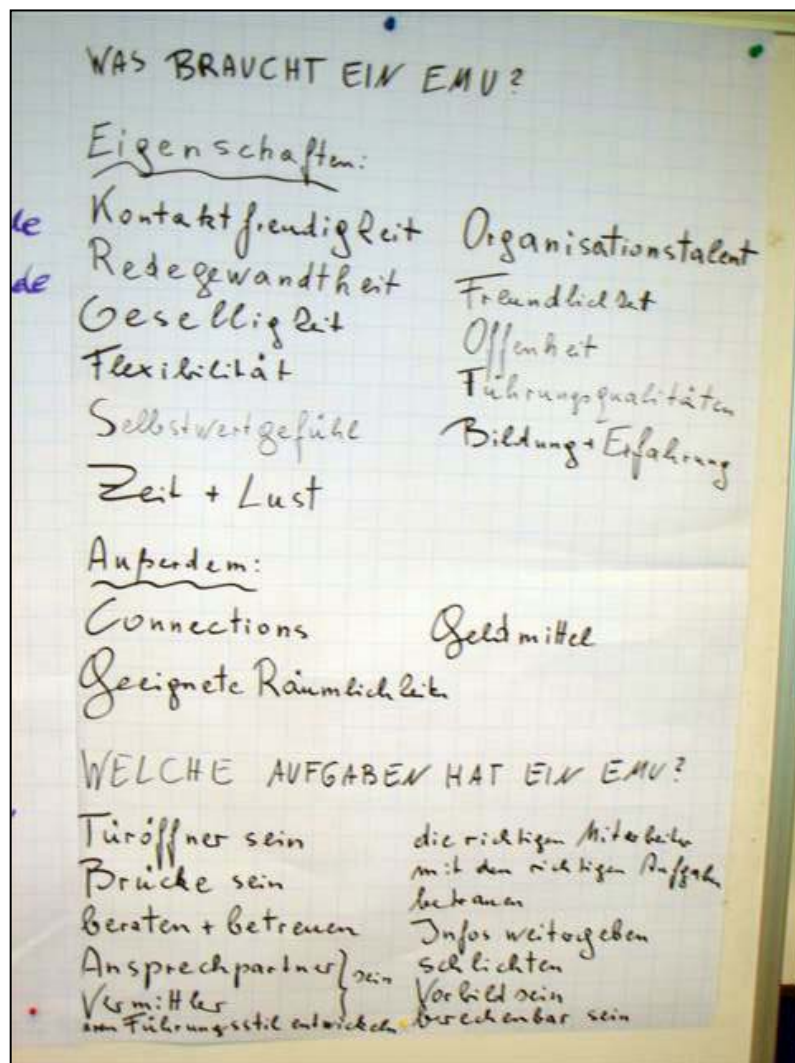 WAS BRAUCHT EIN EMU?
Eigenschaften:
Kontaktfreudigkeit
Redegewandtheit
Geselligkeit
Flexibilität
Selbstwertgefühl
Zeit + Lust
Organisationstalent
Freundlichkeit
Offenheit
Führungsqualitäten
Bildung + Erfahrung
Außerdem:
Connections
Geldmittel
Geeignete Räumlichkeiten
WELCHE AUFGABEN HAT EIN EMU?
Türöffner sein
Brücke sein
beraten + betreuen
Ansprechpartner } sein
Vermittler
Führungsstil entwickeln
die richtigen Mitarbeiter
mit den richtigen Aufgaben
betrauen
Infos weitergeben
schlichten
Vorbild sein
berechenbar sein